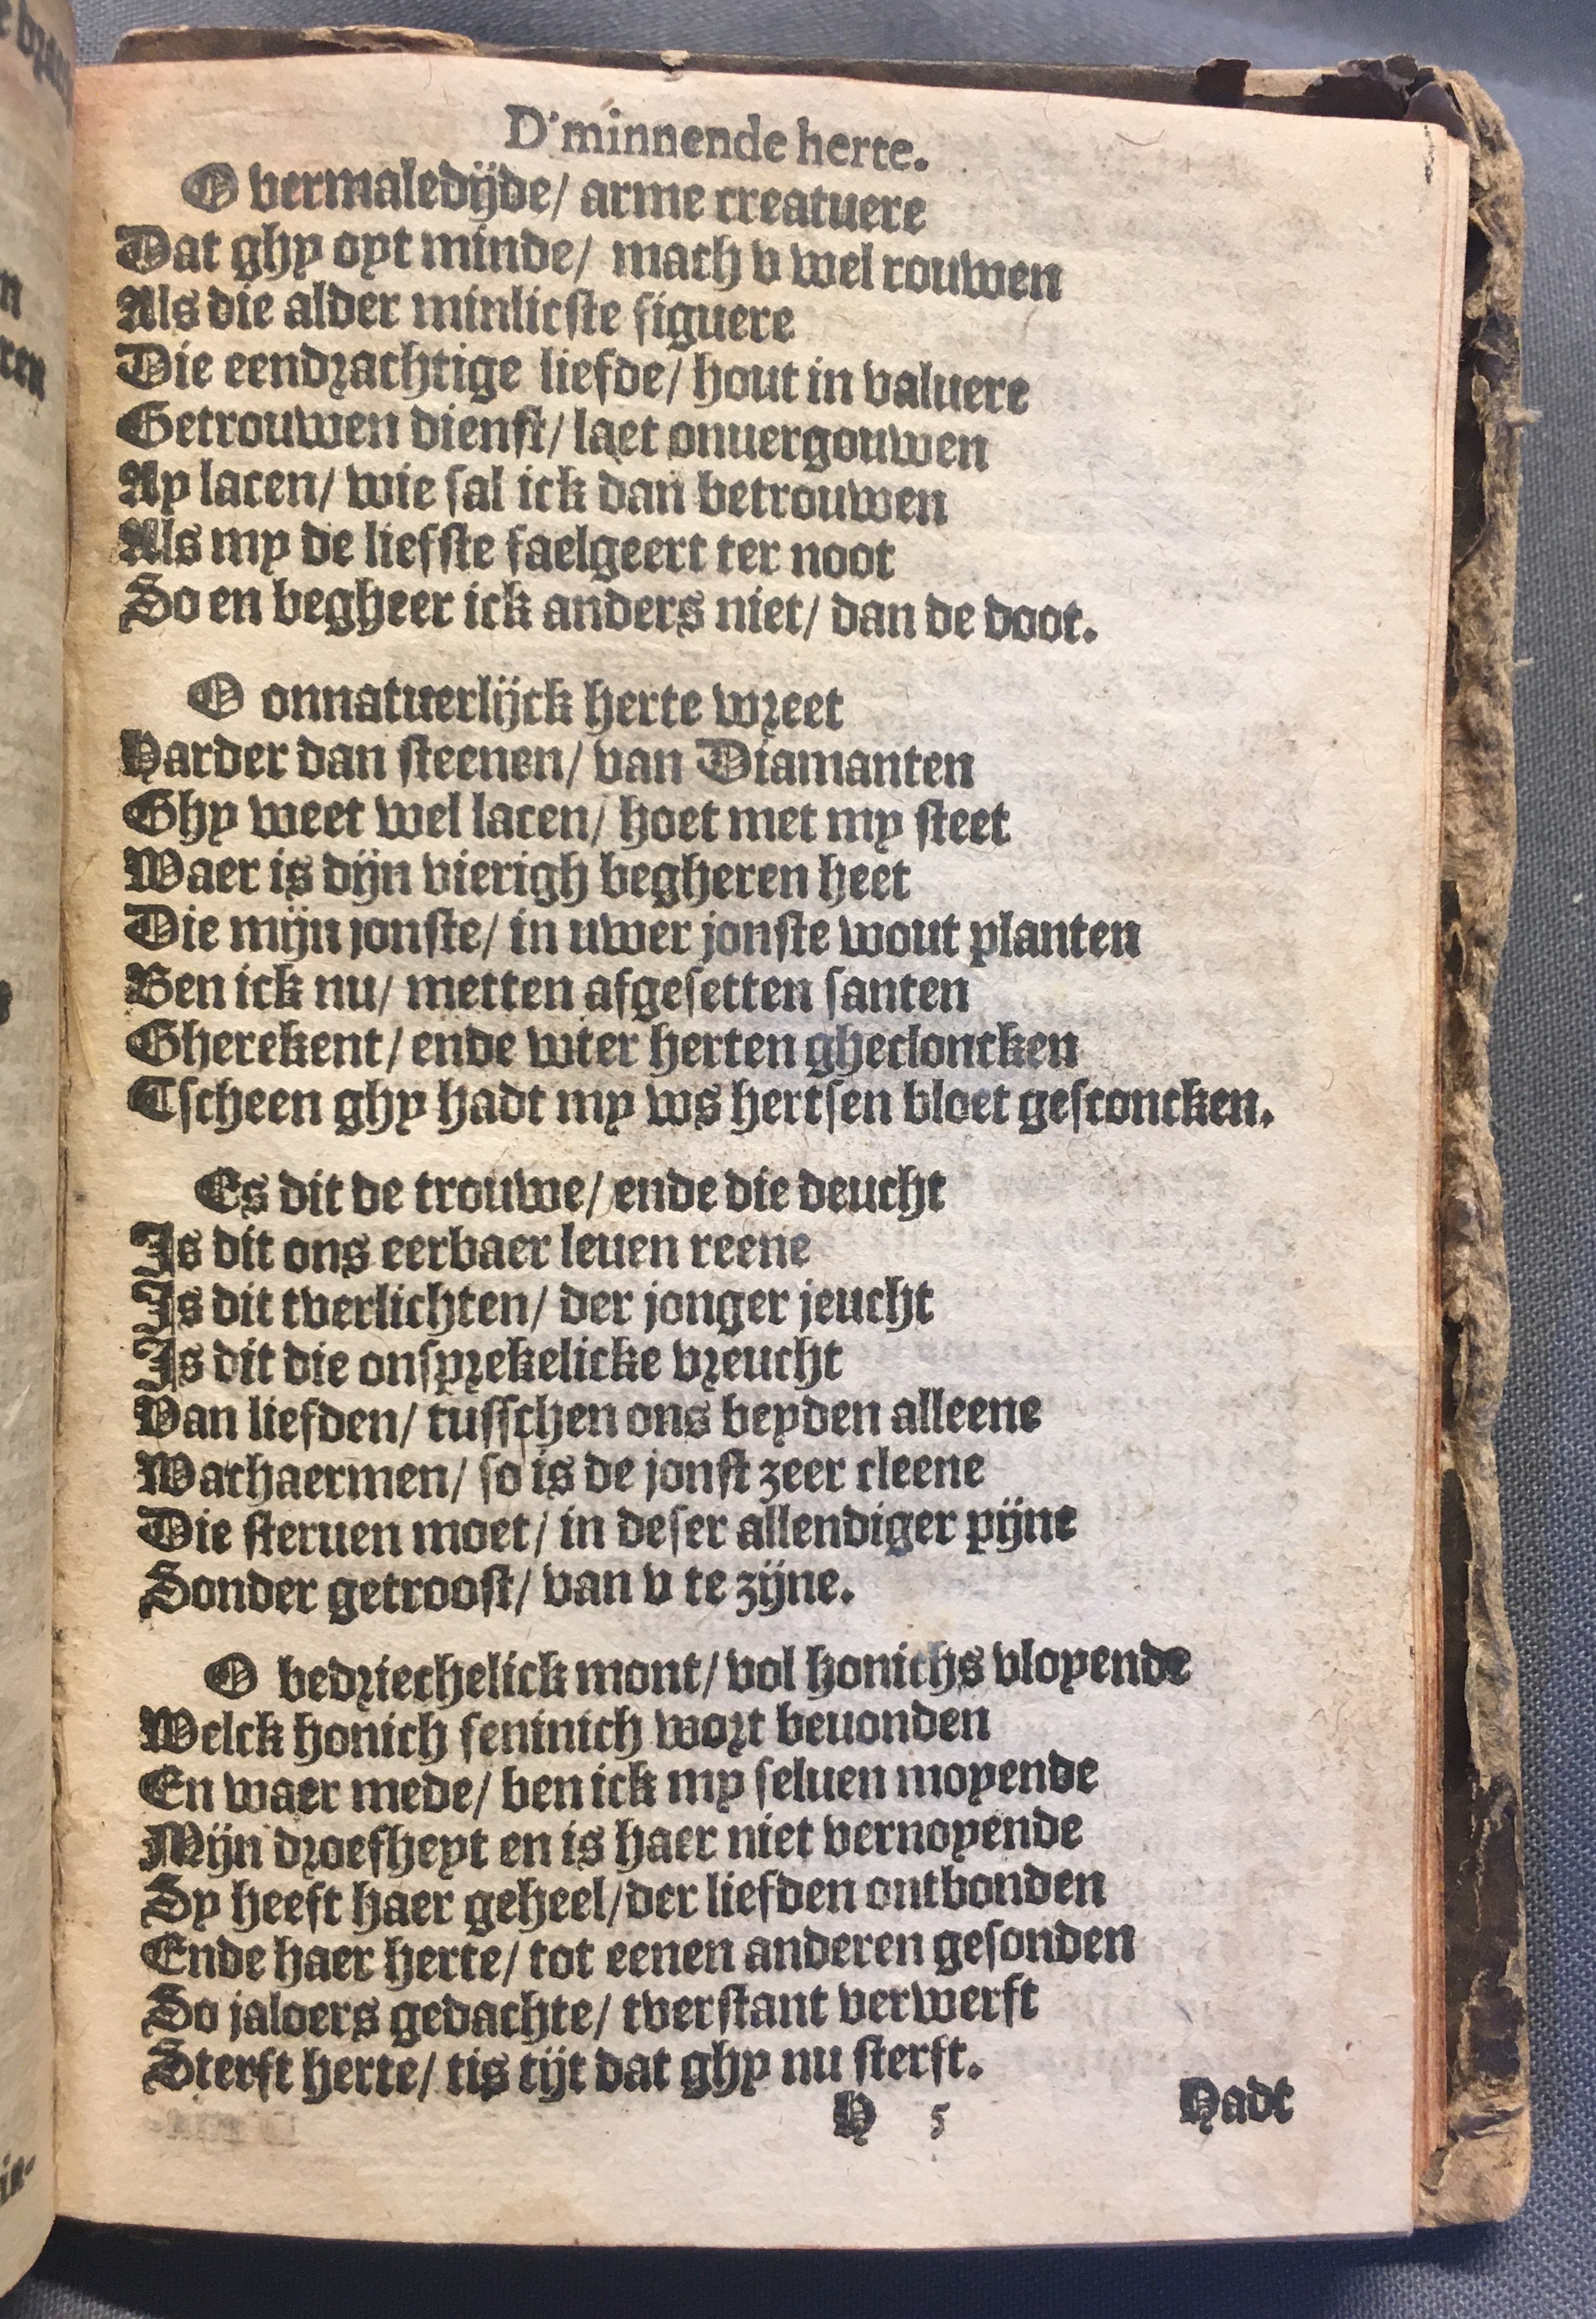 D'minnende herte.
O vermaledijde/ arme creatuere
Dat ghy oyt minde/ mach v wel rouwen
Als die alder minlicste figuere
Die eendrachtige liefde/ hout in valuere
Getrouwen dienst/ laet onuergouwen
Ay lacen/ wie sal ick dan betrouwen
Als my de liefste faelgeert ter noot
So en begheer ick anders niet/ dan de doot.
O onnatuerlijck herte wreet
Harder dan steenen/ van Diamanten
Ghy weet wel lacen/ hoet met my steet
Waer is dijn vierigh begheren heet
Die mijn jonste/ in uwer jonste wout planten
Ben ick nu/ metten afgesetten santen
Gherekent/ ende wter herten ghecloncken
Tscheen ghy hadt my ws hertsen bloet gesconcken.
Es dit de trouwe/ ende die deucht
Is dit ons eerbaer leuen reene
Is dit tverlichten/ der jonger jeucht
Is dit die onsprekelicke vreucht
Van liefden/ tusschen ons beyden alleene
Wachaermen/ so is de jonst zeer cleene
Die steruen moet/ in deser allendiger pijne
Sonder getroost/ van v te zijne.
O bedriechelick mont/ vol honichs vloyende
Welck honich feninich wort beuonden
En waer mede/ ben ick my seluen moyende
Mijn droefheyt en is haer niet vernoyende
Sy heeft haer geheel/der liefden ontbonden
Ende haer herte/ tot eenen anderen gesonden
So jaloers gedachte/ tverstant verwerft
Sterft herte/ tis tijt dat ghy nu sterft.
H 5 Hadt